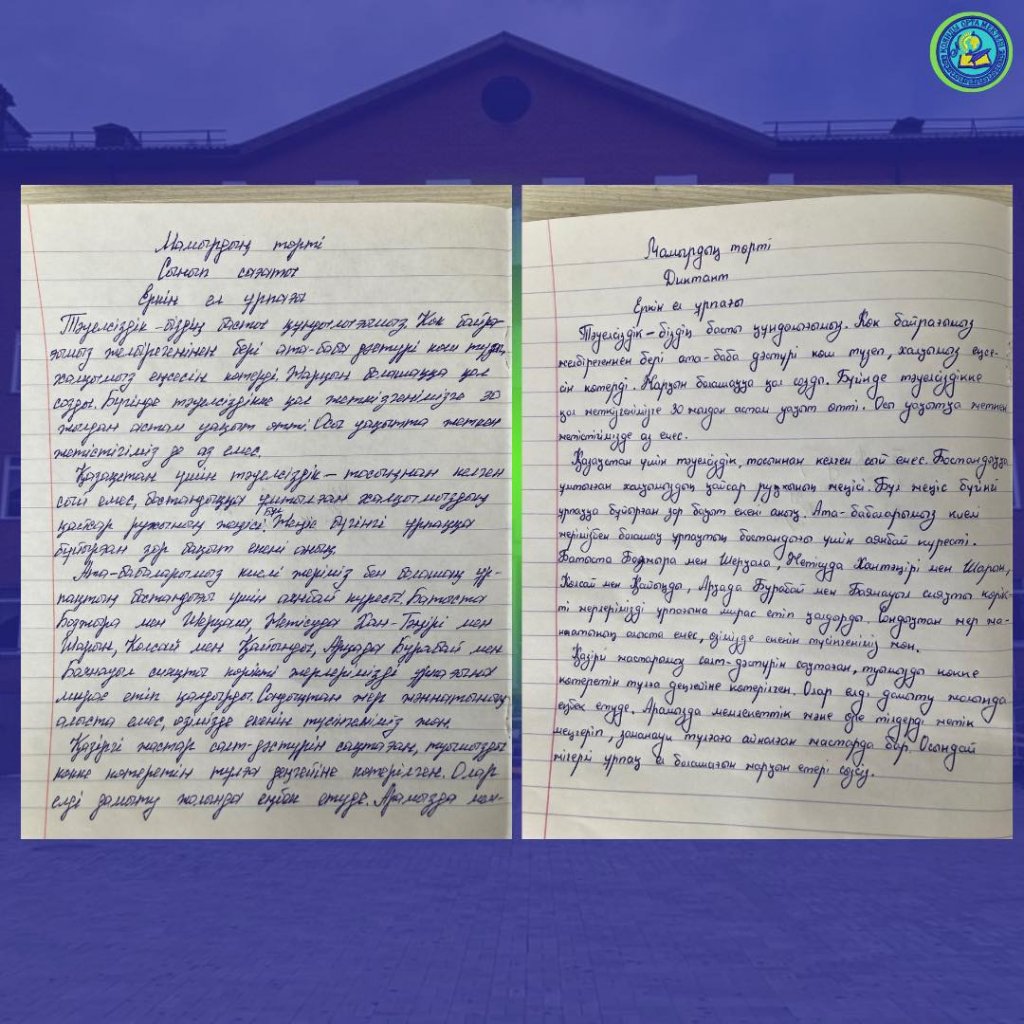 Мамырдың төрті
Сынып сағаты
Еркін ел ұрпағы
Тәуелсіздік - біздің басты құндылығымыз. Көк байра-
ғымыз желбірегенінен бері ата-баба дәстүрі көш түзеп,
халқымыз еңсесін көтерді. Жарқын болашаққа қол
созды. Бүгінде тәуелсіздікке қол жеткізгенімізге 30
жылдан астам уақыт өтті. Осы уақытта жеткен
жетістігіміз де аз емес.
Қазақстан үшін тәуелсіздік – тосыннан келген
сый емес, бостандыққа ұмтылған халқымыздың
қайсар рухының жеңісі. Бұл Жеңіс бүгінгі ұрпаққа
бұйырған зор бақыт екені анық.
Ата-бабаларымыз киелі жеріміз бен болашақ ұр-
пақтың бостандығы үшін аянбай күресті. Батыста
Бозжыра мен Шерқала, Жетісуда Хан-Тәңірі мен
Шарын, Көлсай мен Қайыңды, Арқада Бурабай мен
Баянауыл сияқты көрікті жерлерімізді ұрпағына
мирас етіп қалдырды. Сондықтан жер жәннатының
алыста емес, өзімізде екенін түсінгеніміз жөн.
Қазіргі жастар салт-дәстүрін сақтаған, туымызды
көкке көтеретін тұлға деңгейіне көтерілген. Олар
елді дамыту жолында еңбек етуде. Арамызда мем-
Мамырдың төрті
Диктант
Еркін ел ұрпағы
Тәуелсіздік – біздің басты құндылығымыз. Көк байрағымыз
желбірегеннен бері ата-баба дәстүрі көш түзеп, халқымыз еңсе-
сін көтерді. Жарқын болашаққа қол созды. Бүгінде тәуелсіздікке
қол жеткізгенімізге 30 жылдан астам уақыт өтті. Осы уақытқа жеткен
жетістігімізде аз емес.
Қазақстан үшін тәуелсіздік, тосыннан келген сый емес. Бостандыққа
ұмтылған халқымыздың қайсар рухының жеңісі. Бұл жеңіс бүгінгі
ұрпаққа бұйырған зор бақыт екені анық. Ата-бабаларымыз киелі
жеріміз бен болашақ ұрпақтың бостандығы үшін аянбай күресті.
Батыста Бозжыра мен Шерқала, Жетісуда Хантәңірі мен Шарын,
Көлсай мен Қайыңды, Арқада Бурабай мен Баянауыл сияқты көрік-
ті жерлерімізді ұрпағына мирас етіп қалдырды. Сондықтан жер жә-
ннатының алыста емес, өзімізде екенін түйінгеніміз жөн.
Қазіргі жастарымыз салт-дәстүрін сақтаған, туымызды көкке
көтеретін тұлға деңгейіне көтерілген. Олар елді дамыту жолында
еңбек етуде. Арамызда мемлекеттік және өзге тілдерді жетік
меңгеріп, заманауи тұлғаға айналған жастарда бар. Осындай
жігерлі ұрпақ ел болашағын жарқын етері сөзсіз.